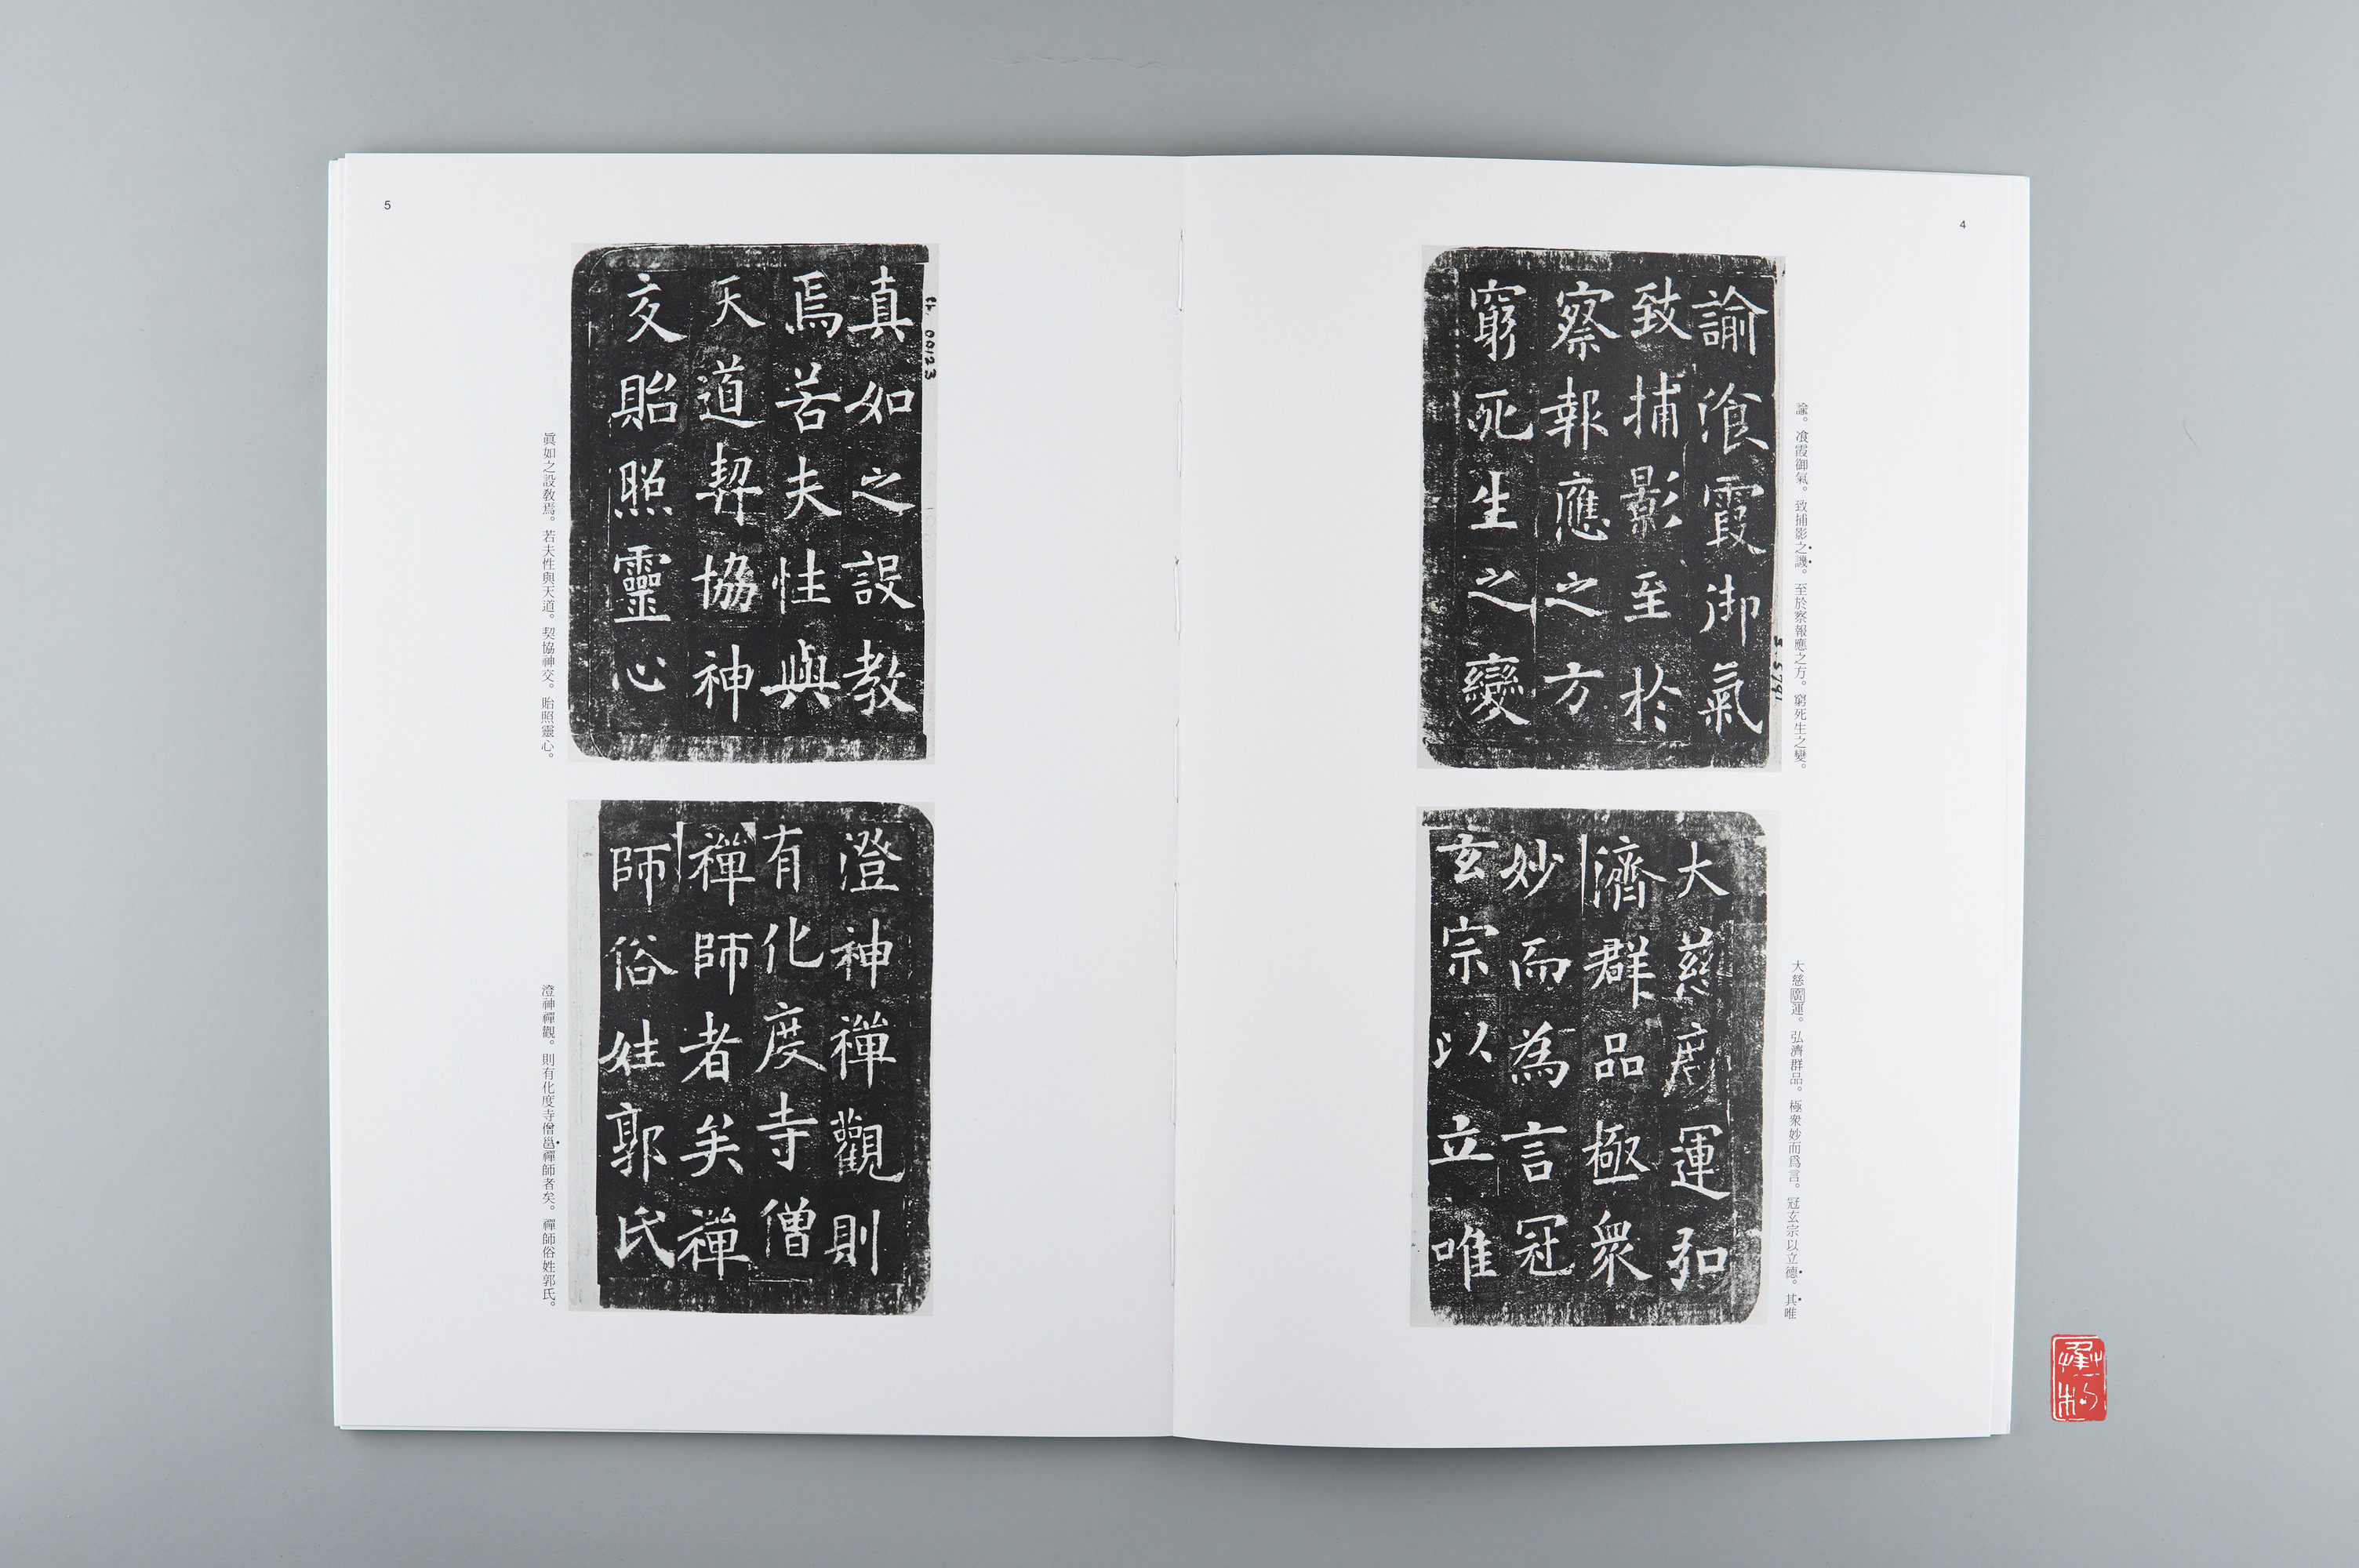 4
諭飡霞御氣
致捕影至於
察報應之方
窮死生之變
諭。飡霞御氣。致捕影之譏。至於察報應之方。窮死生之變。
大慈廣運弘
濟群品極衆
妙而為言冠
玄宗以立唯
大慈廣運。弘濟群品。極衆妙而爲言。冠玄宗以立德。其唯
5
真如之設教
焉若夫性與
天道契協神
交貽照靈心
ch. 00123
S.5791
眞如之設教焉。若夫性與天道。契協神交。貽照靈心。
澄神禪觀則
有化度寺僧
禪師者矣禪
師俗姓郭氏
澄神禪觀。則有化度寺僧邕禪師者矣。禪師俗姓郭氏。